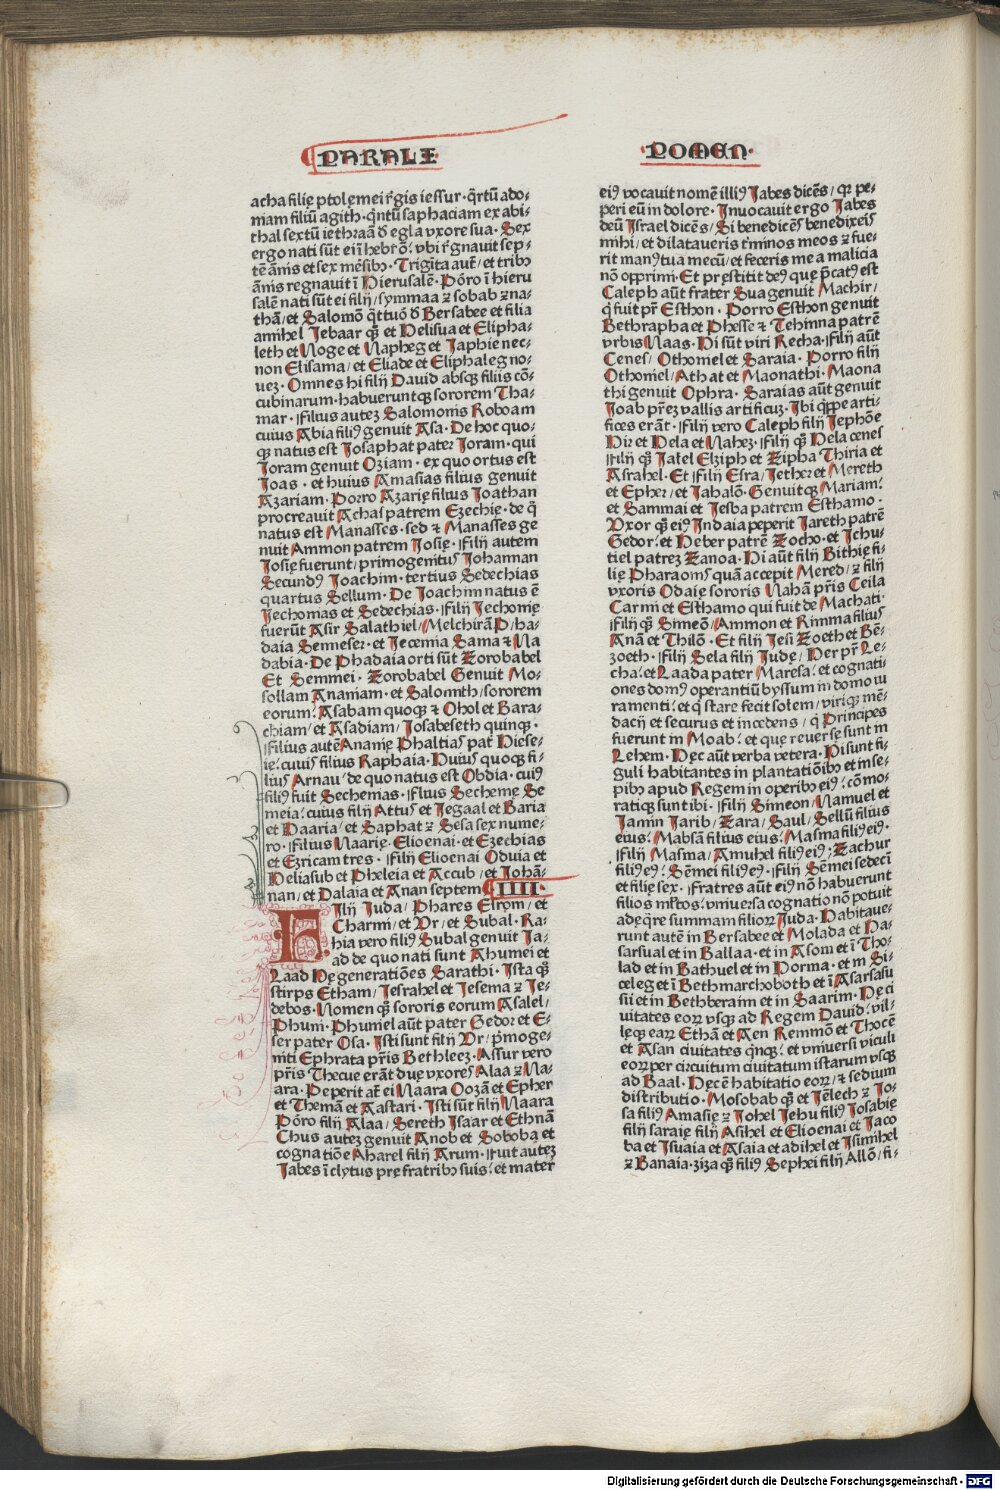 PARALI
POMEN
acha filię ptolęmei r̄gis iessur · q̄rtū ado-
mam filiū agith · q̄ntū saphaciam ex abi-
thal sextū iethraā d̄ egla vxore sua · Sex
ergo nati sūt ei ī hebrō: vbi r̄gnauit sep-
tē ānis et sex mēsibꝰ · Trigita aut̄/ et tribꝰ
ānis regnauit ī Hierusalē · Pōro ī hieru
salē nati sūt ei filij/ symmaa ꝛ sobab ꝛ na-
thā/ et Salomō q̄ttuō d̄ Bersabee et filia
amihel Jebaar qꝫ et Helisua et Elipha-
leth et Noge et Napheg et Japhie nec-
non Elisama/ et Eliade et Eliphaleg no-
uez · Omnes hi filij Dauid absqꝫ filiis cō-
cubinarum · habueruntqꝫ sororem Tha-
mar · Filius autez Salomonis Roboam
cuius Abia filiꝰ genuit Asa · De hoc quo-
qꝫ natus est Josaphat pater Joram · qui
Joram genuit Oziam · ex quo ortus est
Joas · et huius Amasias filius genuit
Azariam · Porro Azarię filius Joathan
procreauit Achas patrem Ezechię · de q̄
natus est Manasses · sed ꝛ Manasses ge
nuit Ammon patrem Josię · Filij autem
Josię fuerunt/ primogenitꝰ Johannan
Secundꝰ Joachim · tertius Sedechias
quartus Sellum · De Joachim natus ē
Jechomas et Sedechias · Filij Jechonię
fuerūt Asir Salathiel/ Melchirā P/ha-
daia Senneser · et Jecemia Sama ꝛ Na
dabia · De Phadaia orti sūt Zorobabel
Et Semmei · Zorobabel Genuit Mo-
sollam Ananiam · et Salomith/ sororem
eorum: Asabam quoqꝫ ꝛ Ohol et Bara-
chiam/ et Asadiam/ Josabeseth quinqꝫ ·
Filius autē Ananię Phaltias pat̄ Hiese-
ię: cuius filius Raphaia · Huius quoqꝫ fi-
lius Arnau/ de quo natus est Obdia · cuiꝰ
filiꝰ fuit Sechemas · Flius Sechemę Se
meia: cuius filij Attus et Jegaal et Baria
et Naaria/ et Saphat ꝛ Sesa sex nume-
ro · Filius Naarię · Elioenai · et Ezechias
et Ezricam tres · Filij Elioenai Oduia et
Heliasub et Pheleia et Accub/ et Johā-
nan/ et Dalaia et Anan septem IIII ·
Filij Juda/ Phares Elrom/ et
Charmi/ et Vr/ et Subal · Ra-
hia vero filiꝰ Subal genuit Ja-
ad de quo nati sunt Ahumei et
Laad Hę generatiōes Sarathi · Ista qꝫ
stirps Etham/ Jesrahel et Jesema ꝛ Je-
debos · Nomen qꝫ sororis eorum Asalel/
Phuni · Phumel aūt pater Gedor et E-
ser pater Osa · Isti sunt filij Vr/ p̄moge-
niti Ephrata pr̄is Bethleez · Assur vero
pr̄is Thecue erāt duę vxores Alaa ꝛ Na-
ara · Peperit at̄ ei Naara Oozā et Epher
et Themā et Aastari · Isti sūt filij Naara
Pōro filij Alaa/ Sereth Isaar et Ethnā
Chus autez genuit Anob et Soboba et
cognatiōe Aharel filij Arum · Fuit autez
Jabes īclytus prę fratribꝰ suis: et mater
eiꝰ vocauit nomē illiꝰ Jabes dicēs/ qꝛ pe-
peri eū in dolore · Inuocauit ergo Jabes
deū Israel dicēs/ Si benedicēs benedixeis
mihi/ et dilataueris t̄minos meos ꝛ fue-
rit manꝰ tua mecū/ et feceris me a malicia
nō opprimi · Et pręstitit deꝰ quę p̄catꝰ est
Caleph aūt frater Sua genuit Machir/
q̄ fuit pr̄ Esthon · Porro Esthon genuit
Bethrapha et Phesse ꝛ Tehinna patrē
vrbis Naas · Hi sūt viri Recha · Filij aūt
Cenes/ Othoniel et Saraia · Porro filij
Othoniel/ Athat et Maonathi · Maona
thi genuit Ophra · Saraias aūt genuit
Joab pr̄ez vallis artificuꝫ · Ibi q̄ppe arti-
fices erāt · Filij vero Caleph filij Jephōe
Hir et Hela et Nahez · Filij qꝫ Hela cenes
Filij qꝫ Jalel Elziph et Zipha Thiria et
Asrahel · Et Filij Esra/ Jether et Mereth
et Epher/ et Jahalō · Genuitqꝫ Mariam:
et Sammai et Jesba patrem Esthamo ·
Vxor qꝫ eiꝰ Indaia peperit Jareth patrē
Gedor: et Heber patrē Zocho · et Jchu-
tiel patrez Zanoa · Hi aūt filij Bithię fi-
lię Pharaonis quā accepit Mered/ ꝛ filij
vxoris Odaię sororis Nahā pr̄is Ceila
Carmi et Esthamo qui fuit de Machati ·
Filij qꝫ Simeō/ Ammon et Rimma filius
Anā et Thilō · Et filij Jesi Zoeth et Bē-
zoeth · Filij Sela filij Judę/ Her pr̄ Le-
cha: et Laada pater Maresa: et cognati-
ones domꝰ operantiū byssum in domo iu
ramenti: et q̄ stare fecit solem/ viriqꝫ mē-
dacij et securus et incedens/ q̄ Principes
fuerunt in Moab: et quę reuersę sunt in
Lehem · Hęc aūt verba vetera · Hi sunt fi-
guli habitantes in plantatiōibꝰ et in se-
pibꝰ apud Regem in operibꝰ eiꝰ: cōmo-
ratiqꝫ sunt ibi · Filij Simeon/ Namuel et
Jamin Jarib/ Zara/ Saul/ Sellū filius
eius: Mabsā filius eius: Masma filiꝰ eiꝰ ·
Filij Masma/ Amuhel filiꝰ eiꝰ: Zachur
filiꝰ eiꝰ: Semei filiꝰ eiꝰ · Filij Semei sedecī
et filię sex · Fratres aūt eiꝰ nō habuerunt
filios ml̄tos: vniuersa cognatio nō potuit
adęq̄re summam filioꝝ Juda · Habitaue-
runt autē in Bersabee et Molada et Ha-
sarsual et in Ballaa · et in Asom et ī Tho-
lad et in Bathuel et in Horma · et in Si-
celeg et ī Bethmarchoboth et ī Asarsasu
sii et in Bethberaim et in Saarim · Hę ci
uitates eoꝝ vsqꝫ ad Regem Dauid: vil-
lęqꝫ eaꝝ Ethā et Aen Remmō et Thocē
et Asan ciuitates q̄nqꝫ: et vniuersi viculi
eoꝝ per circuitum ciuitatum istarum vsqꝫ
ad Baal · Hęc ē habitatio eoꝝ/ ꝛ sedium
distributio · Mosobab qꝫ et Jēlech ꝛ Jo-
sa filiꝰ Amasię ꝛ Johel Jehu filiꝰ Josabię
filij saraię filij Asihel et Elioenai et Jaco
ba et Isuaia et Asaia et adihel et Isimihel
ꝛ Banaia · ziza qꝫ filiꝰ Sephei filij Allō/ fi-
Digitalisierung gefördert durch die Deutsche Forschungsgemeinschaft - DFG